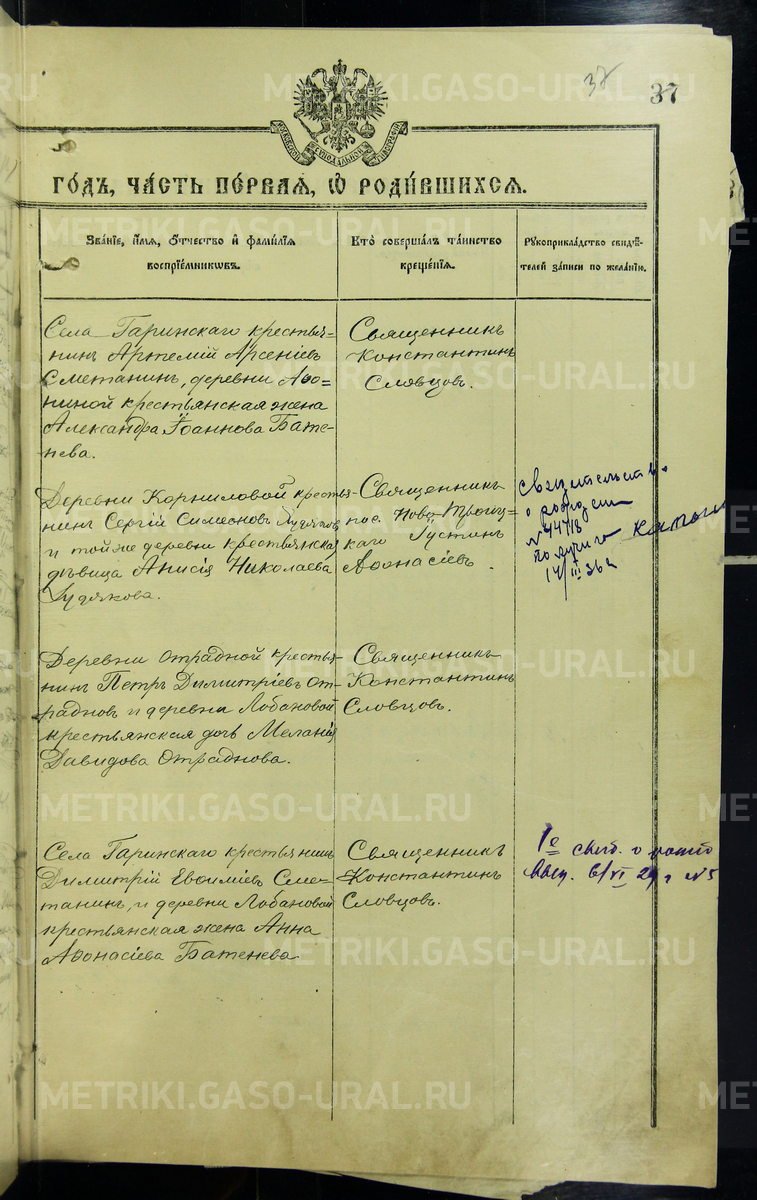 37
37
МОСКОВСКОЙ СѴНОДАЛЬНОЙ ТИПОГРАФІИ
ГО́ДЪ, ЧА́СТЬ ПЕ́РВАЯ, Ѡ҆ РОДИ́ВШИХСЯ.
ЗВА́НІЕ, И҆́МЯ, О҆́ТЧЕСТВО И҆ ФАМИ́ЛІЯ
ВОСПРІЕ́МНИКѠВЪ.
КТО̀ СОВЕРША́ЛЪ ТА́ИНСТВО
КРЕЩЕ́НІЯ.
РꙊКОПРИКЛА́ДСТВО СВИДѢ́-
ТЕЛЕЙ ЗА́ПИСИ ПО ЖЕЛА́НІЮ.
Села Гаринскаго крестья-
нинъ Артемій Арсеніевъ
Сметанинъ, деревни Аѳо-
ниной крестьянская жена
Александра Іоаннова Бате-
нева.
Священникъ
Константинъ
Словцовъ.
Деревни Корниловой кресть-
нинъ Сергій Симеоновъ
и тойже деревни крестьянская
дѣвица Анисія Николаева
Худякова.
Священникъ
пос. Ново-Троиц-
каго Іустинъ
Аѳонасіевъ.
Свидетельство
о рождении
№ 44718
получиго
14/III 36 г
Деревни Отрадной крестья-
нинъ Петръ Димитріевъ От-
радновъ и деревни Лобановой
крестьянская дочь Меланія
Давидова Отраднова.
Священникъ
Константинъ
Словцовъ.
Села Гаринскаго крестьянинъ
Димитрій Евѳиміевъ Сме-
танинъ, и деревни Лобановой
крестьянская жена Анна
Аѳонасіева Батенева
Священникъ
Константинъ
Словцовъ.
свид. о рожд
Выд. 6/VI 29 г №5
METRIKI.GASO-URAL.RU